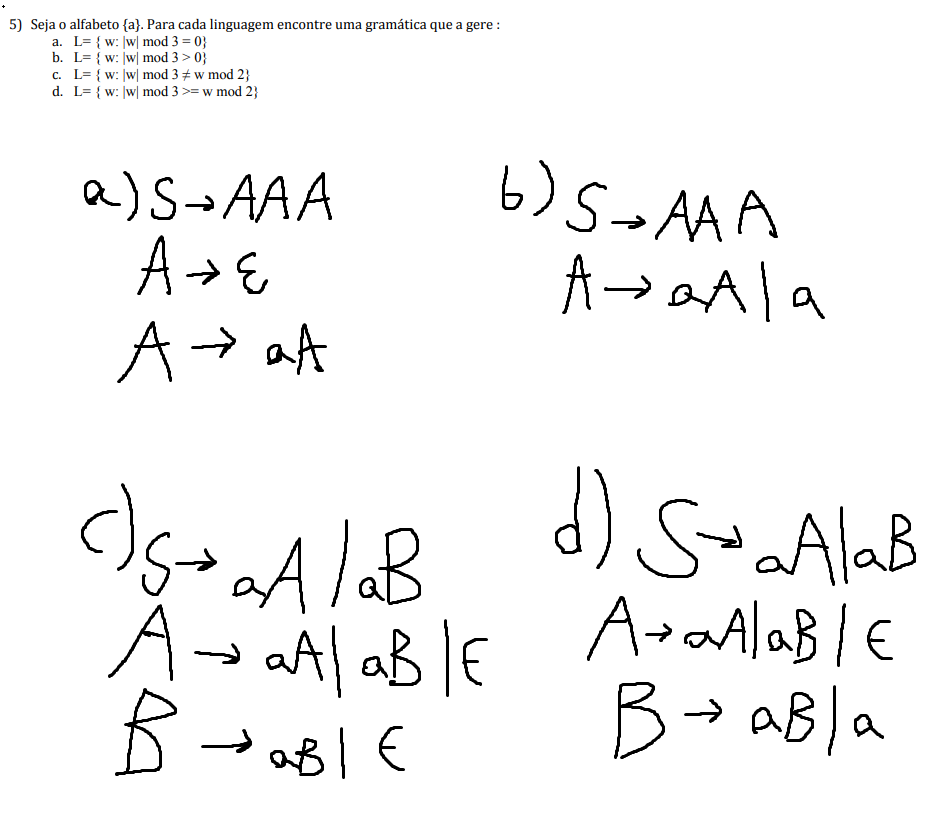 5) Seja o alfabeto {a}. Para cada linguagem encontre uma gramática que a gere :
a. L= { w: |w| mod 3 = 0}
b. L= { w: |w| mod 3 > 0}
c. L= { w: |w| mod 3 ≠ w mod 2}
d. L= { w: |w| mod 3 >= w mod 2}
a) S → AAA
A → ε
A → aA
b) S → AAA
A → aA | a
c) S → aA | aB
A → aA | aB | ∈
B → aB | ∈
d) S → aA | aB
A → aA | aB | ∈
B → aB | a